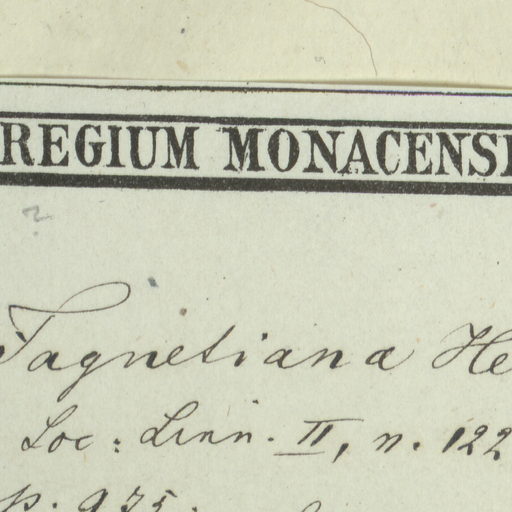 REGIUM MONACENSI
?
Tagnetiana He
Loc: Linn. II, n. 122
p. 975.